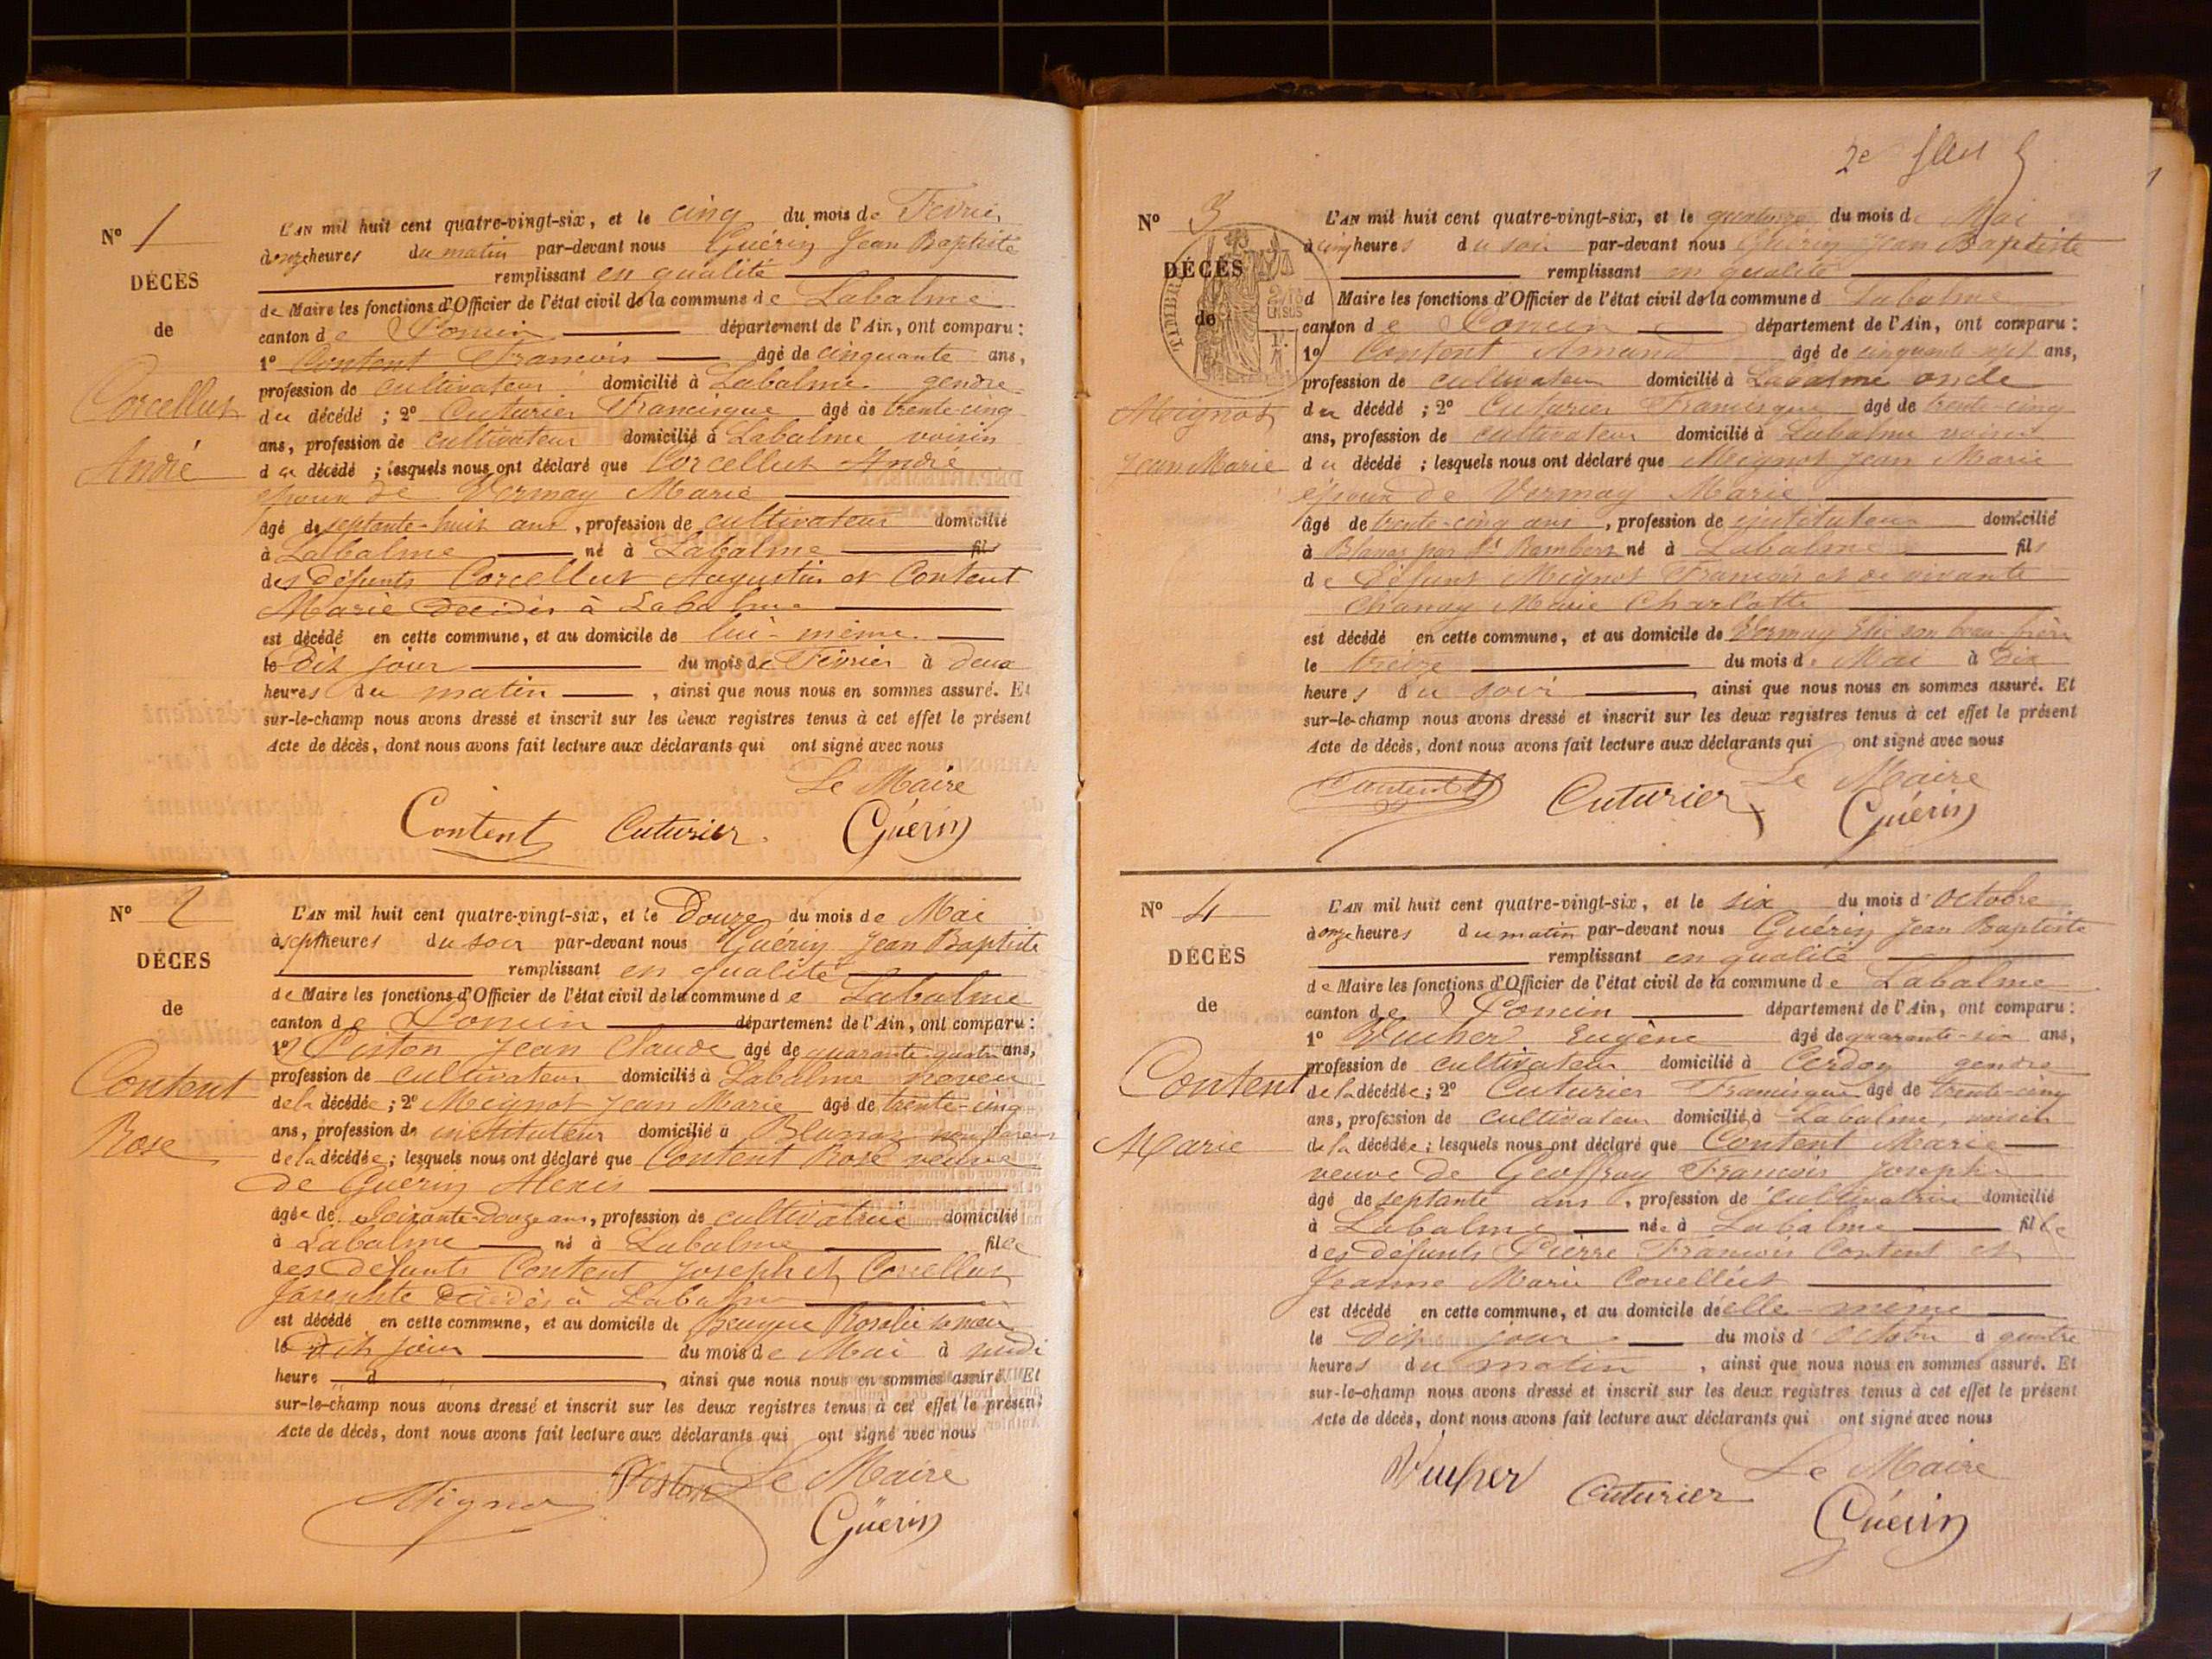 Nº 1
DÉCÈS
de
Corcellut
André
L'AN mil huit cent quatre-vingt-six, et le cinq du mois de Fevrier
à onze heures du matin par-devant nous Guérin Jean Baptiste
remplissant en qualité
de Maire les fonctions d'Officier de l'état civil de la commune de Labalme
canton de Poncin département de l'Ain, ont comparu :
1º Content Francois âgé de cinquante ans,
profession de cultivateur domicilié à Labalme gendre
du décédé ; 2º Cuturier Francisque âgé de trente-cinq
ans, profession de cultivateur domicilié à Labalme voisin
du décédé ; lesquels nous ont déclaré que Corcellut André
époux de Vermay Marie
âgé de septante-huit ans, profession de cultivateur domicilié
à Labalme né à Labalme fils
des défunts Corcellut Augustin et Content
Marie décédés à Labalme
est décédé en cette commune, et au domicile de lui-même
le dit jour du mois de Février à deux
heures du matin, ainsi que nous nous en sommes assuré. Et
sur-le-champ nous avons dressé et inscrit sur les deux registres tenus à cet effet le présent
Acte de décès, dont nous avons fait lecture aux déclarants qui ont signé avec nous
Le Maire
Content Cuturier Guérin
Nº 2
DÉCÈS
de
Content
Rose
L'AN mil huit cent quatre-vingt-six, et le Douze du mois de Mai
à sept heures du soir par-devant nous Guérin Jean Baptiste
remplissant en qualité
de Maire les fonctions d'Officier de l'état civil de la commune de Labalme
canton de Poncin département de l'Ain, ont comparu :
1º Piston Jean Claude âgé de quarante-quatre ans,
profession de cultivateur domicilié à Labalme neveu
de la décédée ; 2º Mignot Jean Marie âgé de trente-cinq
ans, profession de instituteur domicilié à Blanaz
de la décédée ; lesquels nous ont déclaré que Content Rose veuve
de Guérin Alexis
âgée de soixante-douze ans, profession de cultivatrice domicilié
à Labalme né à Labalme fille
des défunts Content Joseph et Corcellut
décédés à Labalme
est décédé en cette commune, et au domicile de Rosalie
le dit jour du mois de Mai à midi
heure d, ainsi que nous nous en sommes assuré. Et
sur-le-champ nous avons dressé et inscrit sur les deux registres tenus à cet effet le présent
Acte de décès, dont nous avons fait lecture aux déclarants qui ont signé avec nous
Mignot Piston Le Maire
Guérin
2e
Nº 3
DÉCÈS
de
TIMBRE
Mignot
Jean Marie
L'AN mil huit cent quatre-vingt-six, et le quatorze du mois de Mai
à cinq heures du soir par-devant nous Guérin Jean Baptiste
remplissant en qualité
d Maire les fonctions d'Officier de l'état civil de la commune d Labalme
canton de Poncin département de l'Ain, ont comparu :
1º Content Amand âgé de cinquante-sept ans,
profession de cultivateur domicilié à Labalme oncle
du décédé ; 2º Cuturier Francisque âgé de trente-cinq
ans, profession de cultivateur domicilié à Labalme voisin
du décédé ; lesquels nous ont déclaré que Mignot Jean Marie
époux de Vermay Marie
âgé de trente-cinq ans, profession de instituteur domicilié
à Blanaz par St Rambert né à Labalme fils
de Défunt Mignot Francois et de vivante
Chanay Marie Charlotte
est décédé en cette commune, et au domicile de Vermay Elie son beau frère
le treize du mois de Mai à dix
heures du soir, ainsi que nous nous en sommes assuré. Et
sur-le-champ nous avons dressé et inscrit sur les deux registres tenus à cet effet le présent
Acte de décès, dont nous avons fait lecture aux déclarants qui ont signé avec nous
Le Maire
Content Cuturier Guérin
Nº 4
DÉCÈS
de
Content
Marie
L'AN mil huit cent quatre-vingt-six, et le six du mois d'Octobre
à onze heures du matin par-devant nous Guérin Jean Baptiste
remplissant en qualité
de Maire les fonctions d'Officier de l'état civil de la commune de Labalme
canton de Poncin département de l'Ain, ont comparu :
1º Vucher Eugène âgé de quarante-six ans,
profession de cultivateur domicilié à Cerdon gendre
de la décédée ; 2º Cuturier Francisque âgé de trente-cinq
ans, profession de cultivateur domicilié à Labalme, voisin
de la décédée ; lesquels nous ont déclaré que Content Marie
veuve de Geoffray Francois Joseph
âgé de septante ans, profession de cultivatrice domicilié
à Labalme née à Labalme fille
des défunts Pierre Francois Content et
Jeanne Marie Corcellut
est décédé en cette commune, et au domicile de elle-même
le dit jour du mois d'Octobre à quatre
heures du matin, ainsi que nous nous en sommes assuré. Et
sur-le-champ nous avons dressé et inscrit sur les deux registres tenus à cet effet le présent
Acte de décès, dont nous avons fait lecture aux déclarants qui ont signé avec nous
Le Maire
Vucher Cuturier Guérin